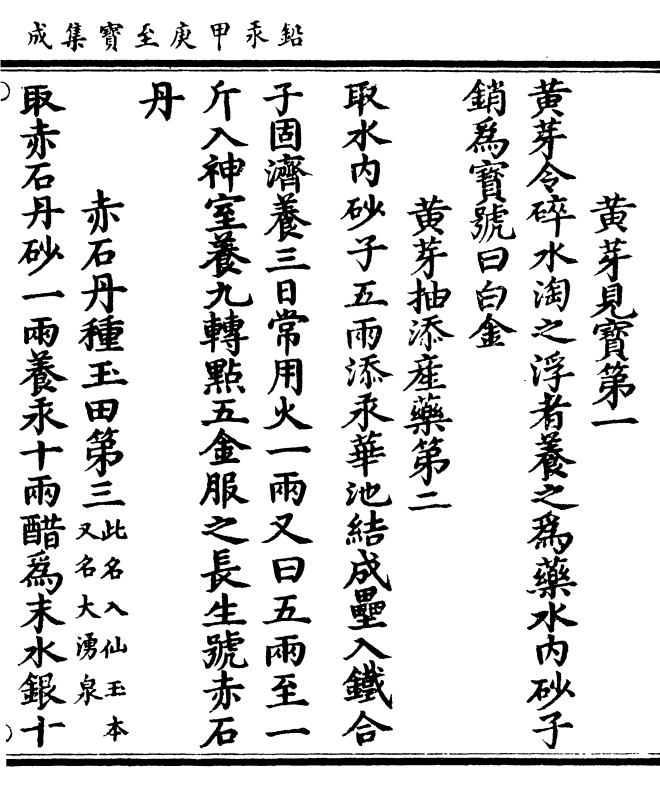 鉛汞甲庚至寶集成
黄芽見寶第一
黄芽令碎水淘之浮者養之為藥水内砂子
銷為寶號曰白金
黄芽抽添産藥第二
取水内砂子五兩添汞華池結成壘入鐵合
子固濟養三日常用火一兩又曰五兩至一
斤入神室養九轉點五金服之長生號赤石
丹
赤石丹種玉田第三此名入仙玉本又名大湧泉
取赤石丹砂一兩養汞十兩醋為末水銀十